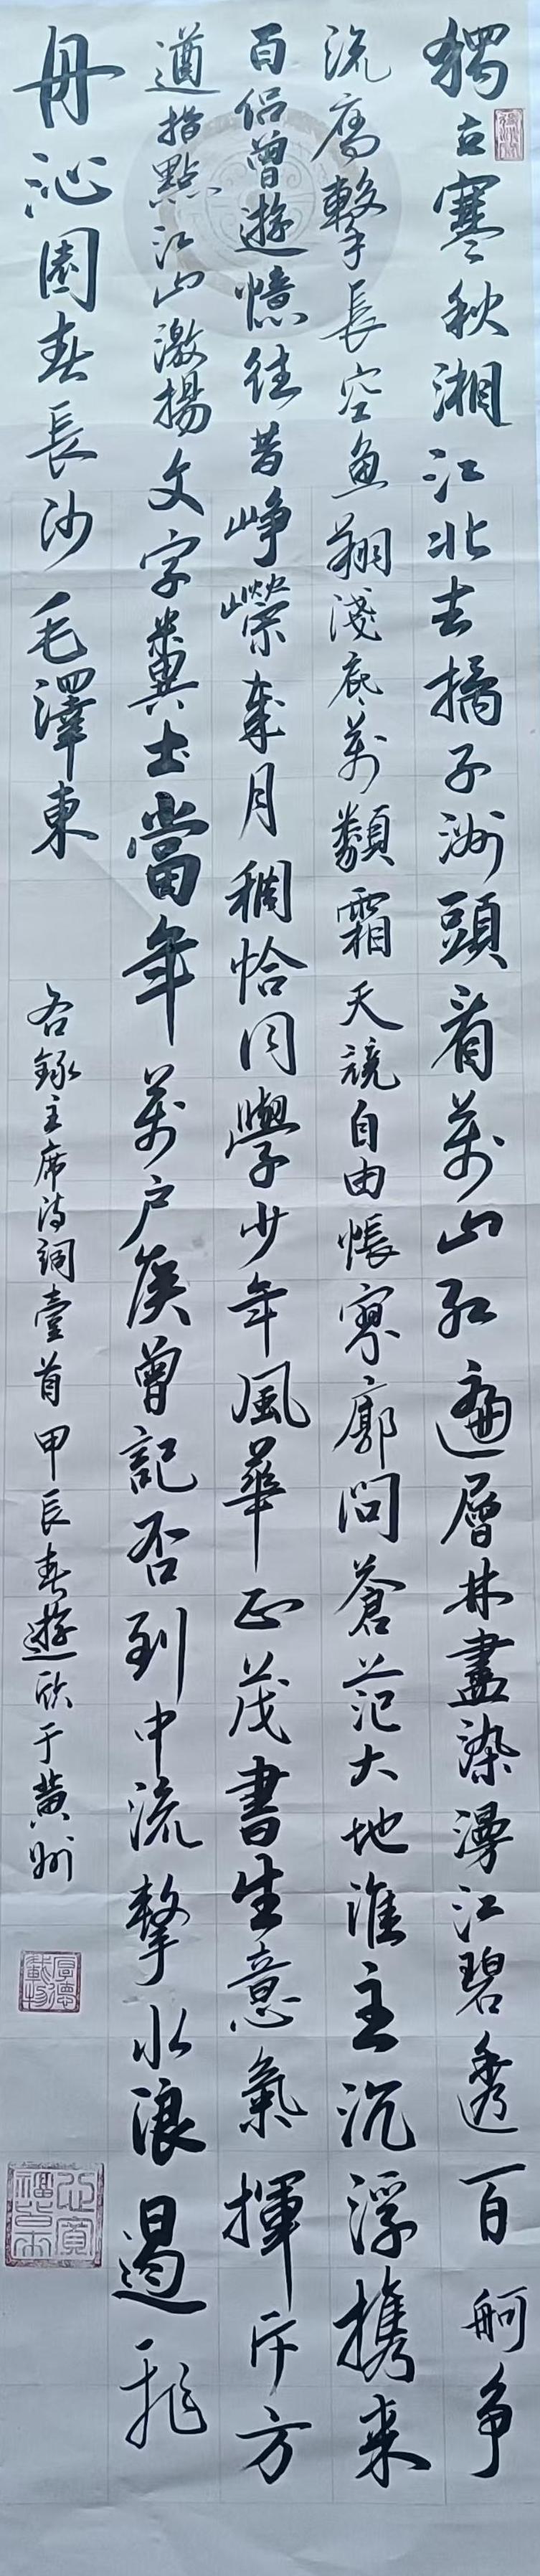 獨立寒秋湘江北去橘子洲頭看萬山紅遍層林盡染漫江碧透百舸爭
流鷹擊長空魚翔淺底萬類霜天競自由悵寥廓問蒼茫大地誰主沉浮攜来
百侣曾遊憶往昔崢嶸歲月稠恰同學少年風華正茂書生意氣揮斥方
遒指點江山激揚文字糞土當年萬户侯曾記否到中流擊水浪遏飛
舟沁園春長沙毛澤東
右錄主席诗詞壹首甲辰春遊欣于黄州
厚德載物